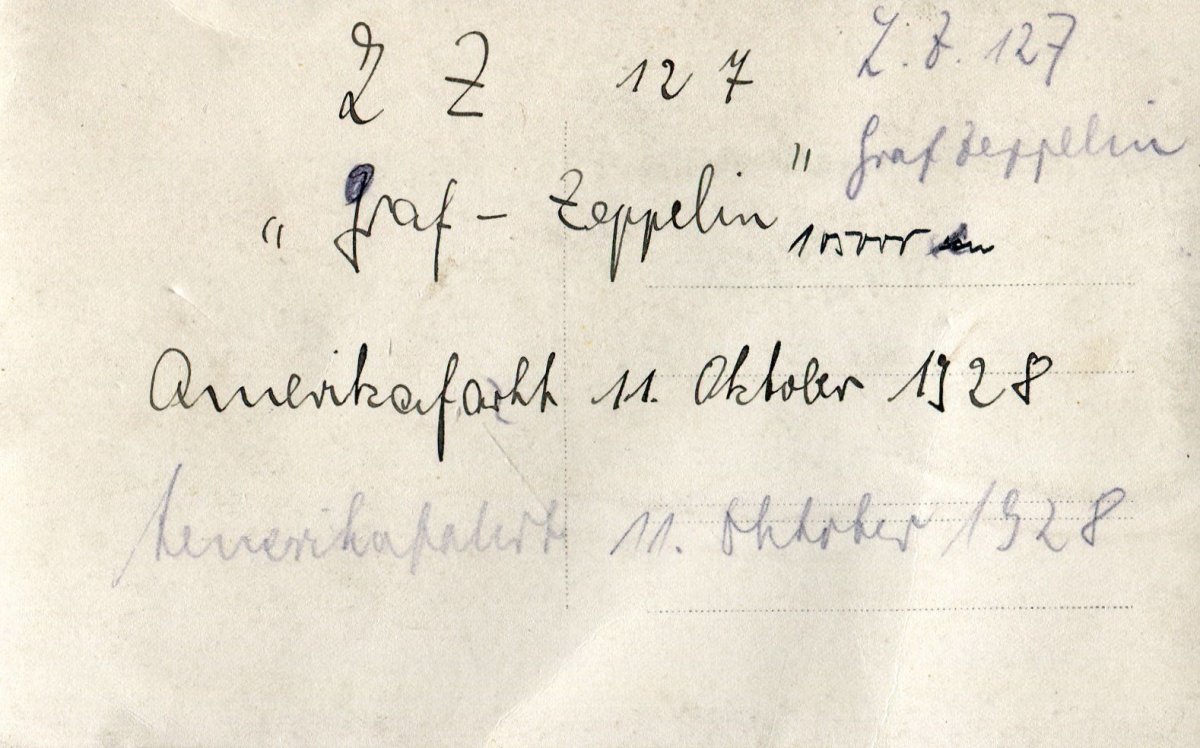 L Z 127
L. Z. 127
Graf Zeppelin
„Graf - Zeppelin"
105000
Amerikafarht 11. Oktober 1928
Amerikafahrt 11. Oktober 1928